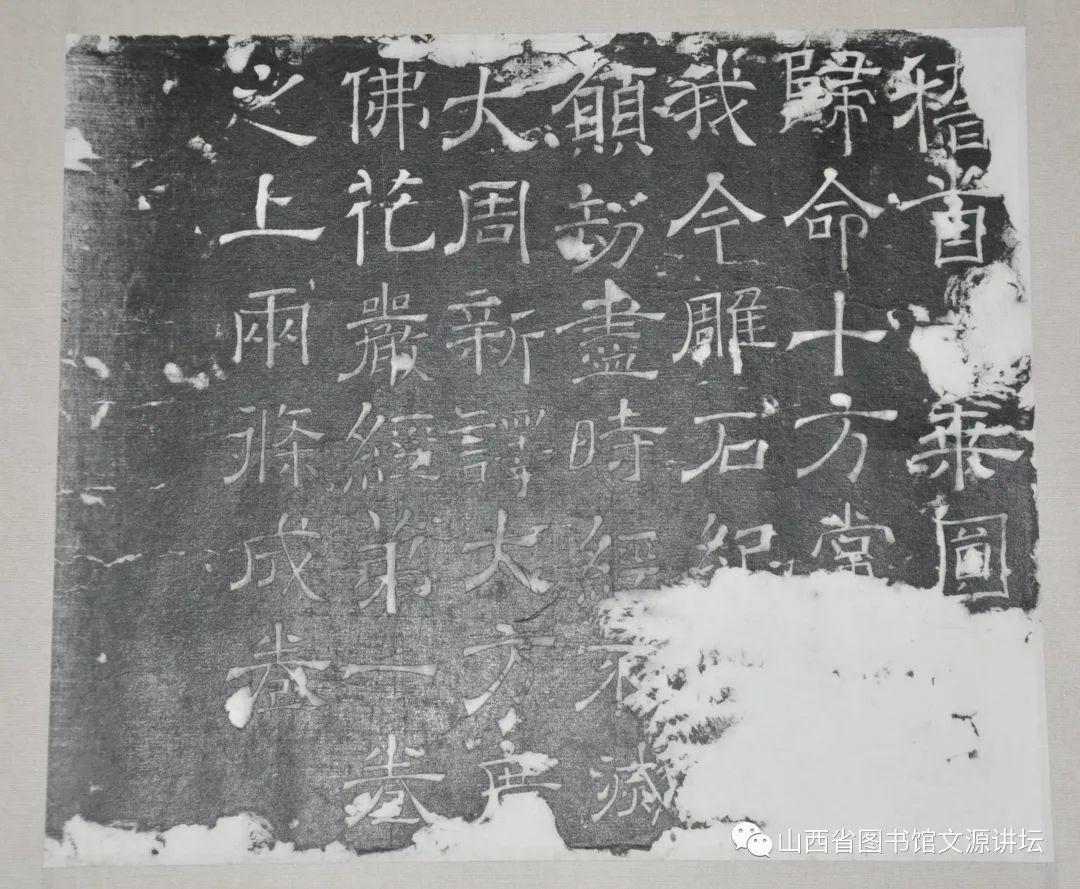 稽首 乗圓
歸命十方常
我今雕石紀
願劫盡時經不滅
大周新譯大方廣
佛花嚴經第一卷
之上兩條成卷
山西省图书馆文源讲坛